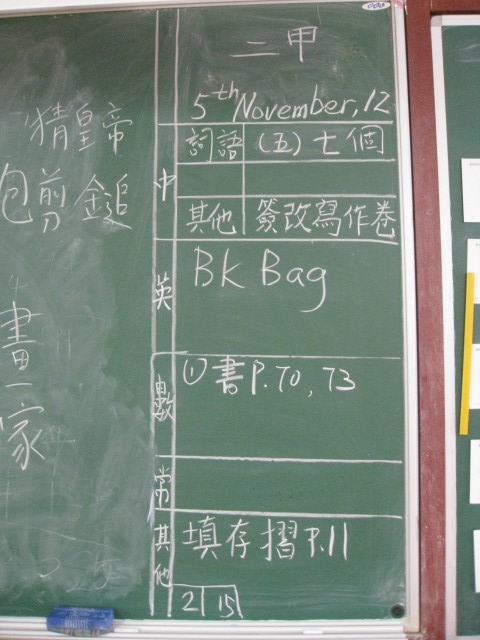 猜皇帝
包剪鎚
畫一家
二甲
5th November, 12
中
詞語 (五)七個
其他 簽改寫作卷
英 Bk Bag
數 ①書P.70, 73
常
其他 填存摺P.11
2 15